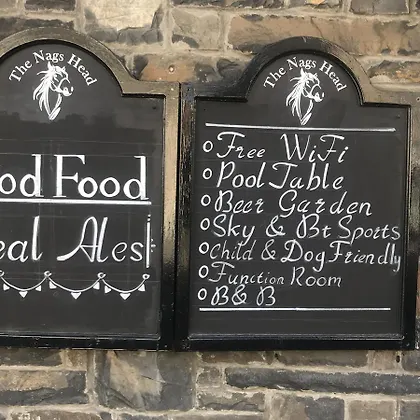 The Nags Head
od Food
eal Ales!
The Nags Head
Free WiFi
Pool Table
Beer Garden
Sky & Bt Sports
Child & Dog Friendly
Function Room
B&B